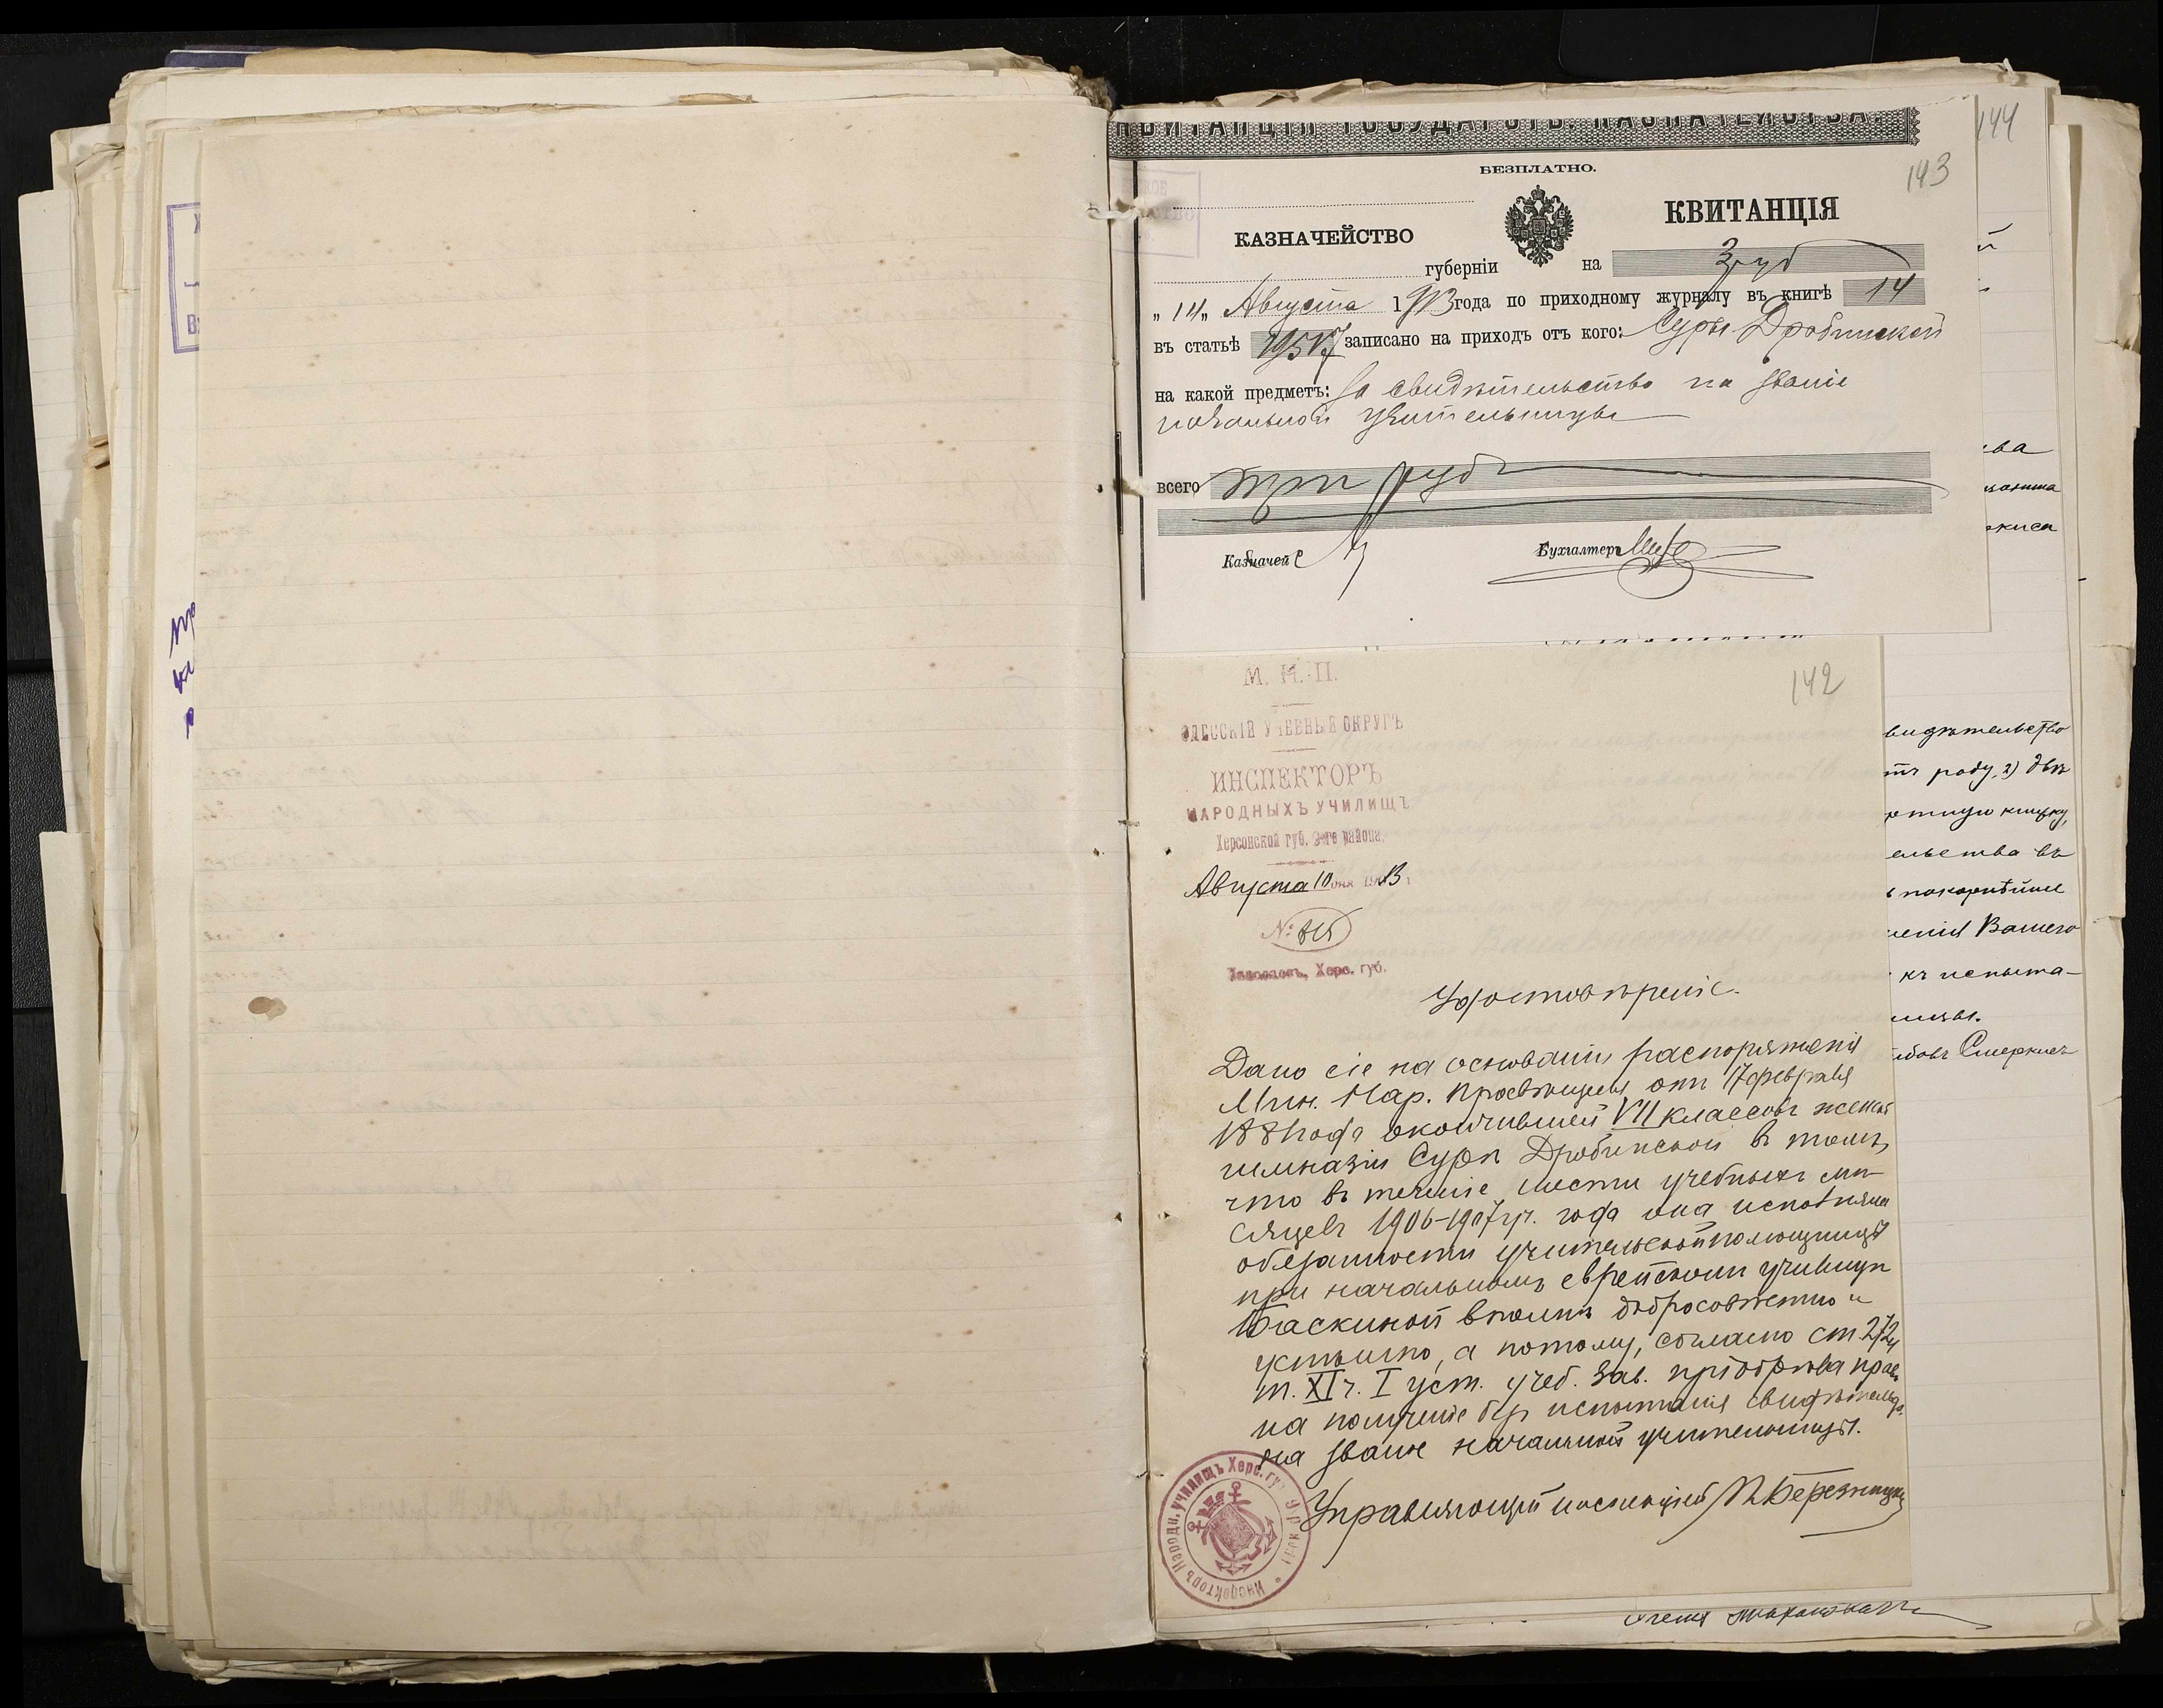 КВИТАНЦІЯ ГОСУДАРСТВ. КАЗНАЧЕЙСТВА.
144
БЕЗПЛАТНО.
143
КВИТАНЦІЯ
КАЗНАЧЕЙСТВО
губерніи на 3 руб
„14„ Августа 1913 года по приходному журналу въ книгѣ 14
въ статьѣ записано на приходъ отъ кого: Суры Дробинской
на какой предметъ: За свидѣтельство на званіе
начальной учительницы
всего три руб
Казначей
Бухгалтеръ
М. Н. П.
142
ОДЕССКІЙ УЧЕБНЫЙ ОКРУГЪ
ИНСПЕКТОРЪ
НАРОДНЫХЪ УЧИЛИЩЪ
Херсонской губ. района.
Августа 10 дня 1913
№
Херс. губ.
Удостовѣреніе.
Дано сіе на основаніи распоряженія
Мин. Нар. Просвѣщенія отъ 17 февраля
1881 года окончившей VII классовъ женской
гимназіи Сурѣ Дробинской въ томъ,
что въ теченіе шести учебныхъ мѣ-
сяцевъ 1906-1907 уч. года она исполняла
обязанности учительской помощницы
при начальномъ еврейскомъ училищѣ
Баскиной вполнѣ добросовѣстно и
успѣшно, а потому, согласно ст. 272
т. XI ч. I уст. учеб. зав. пріобрѣла право
на полученіе безъ испытанія свидѣтельства
на званіе начальной учительницы.
Управляющій инспекціей П. Березницкій
Инспекторъ Народн. училищъ Херс. губ.
видѣтельство
роду, 2) двѣ
ртную книжку,
ельства въ
покорнѣйше
ленія Вашего
къ испыта-
ницы.